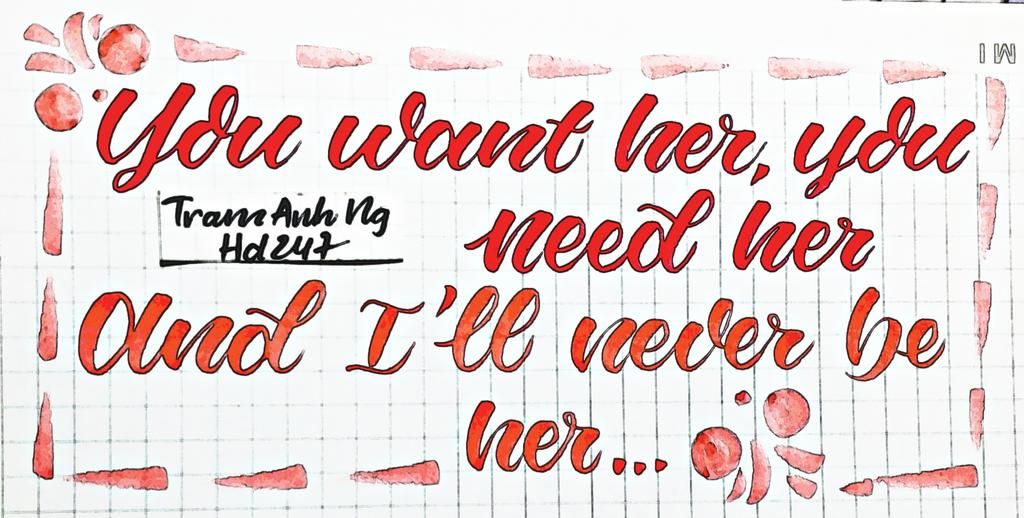 You want her, you
Tram Anh Ng
Hd247
need her
And I'll never be
her...